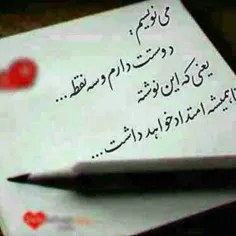 می نویسم:
دوستت دارم و سه نقطه...
یعنی که این نوشته
تا همیشه امتداد خواهد داشت...